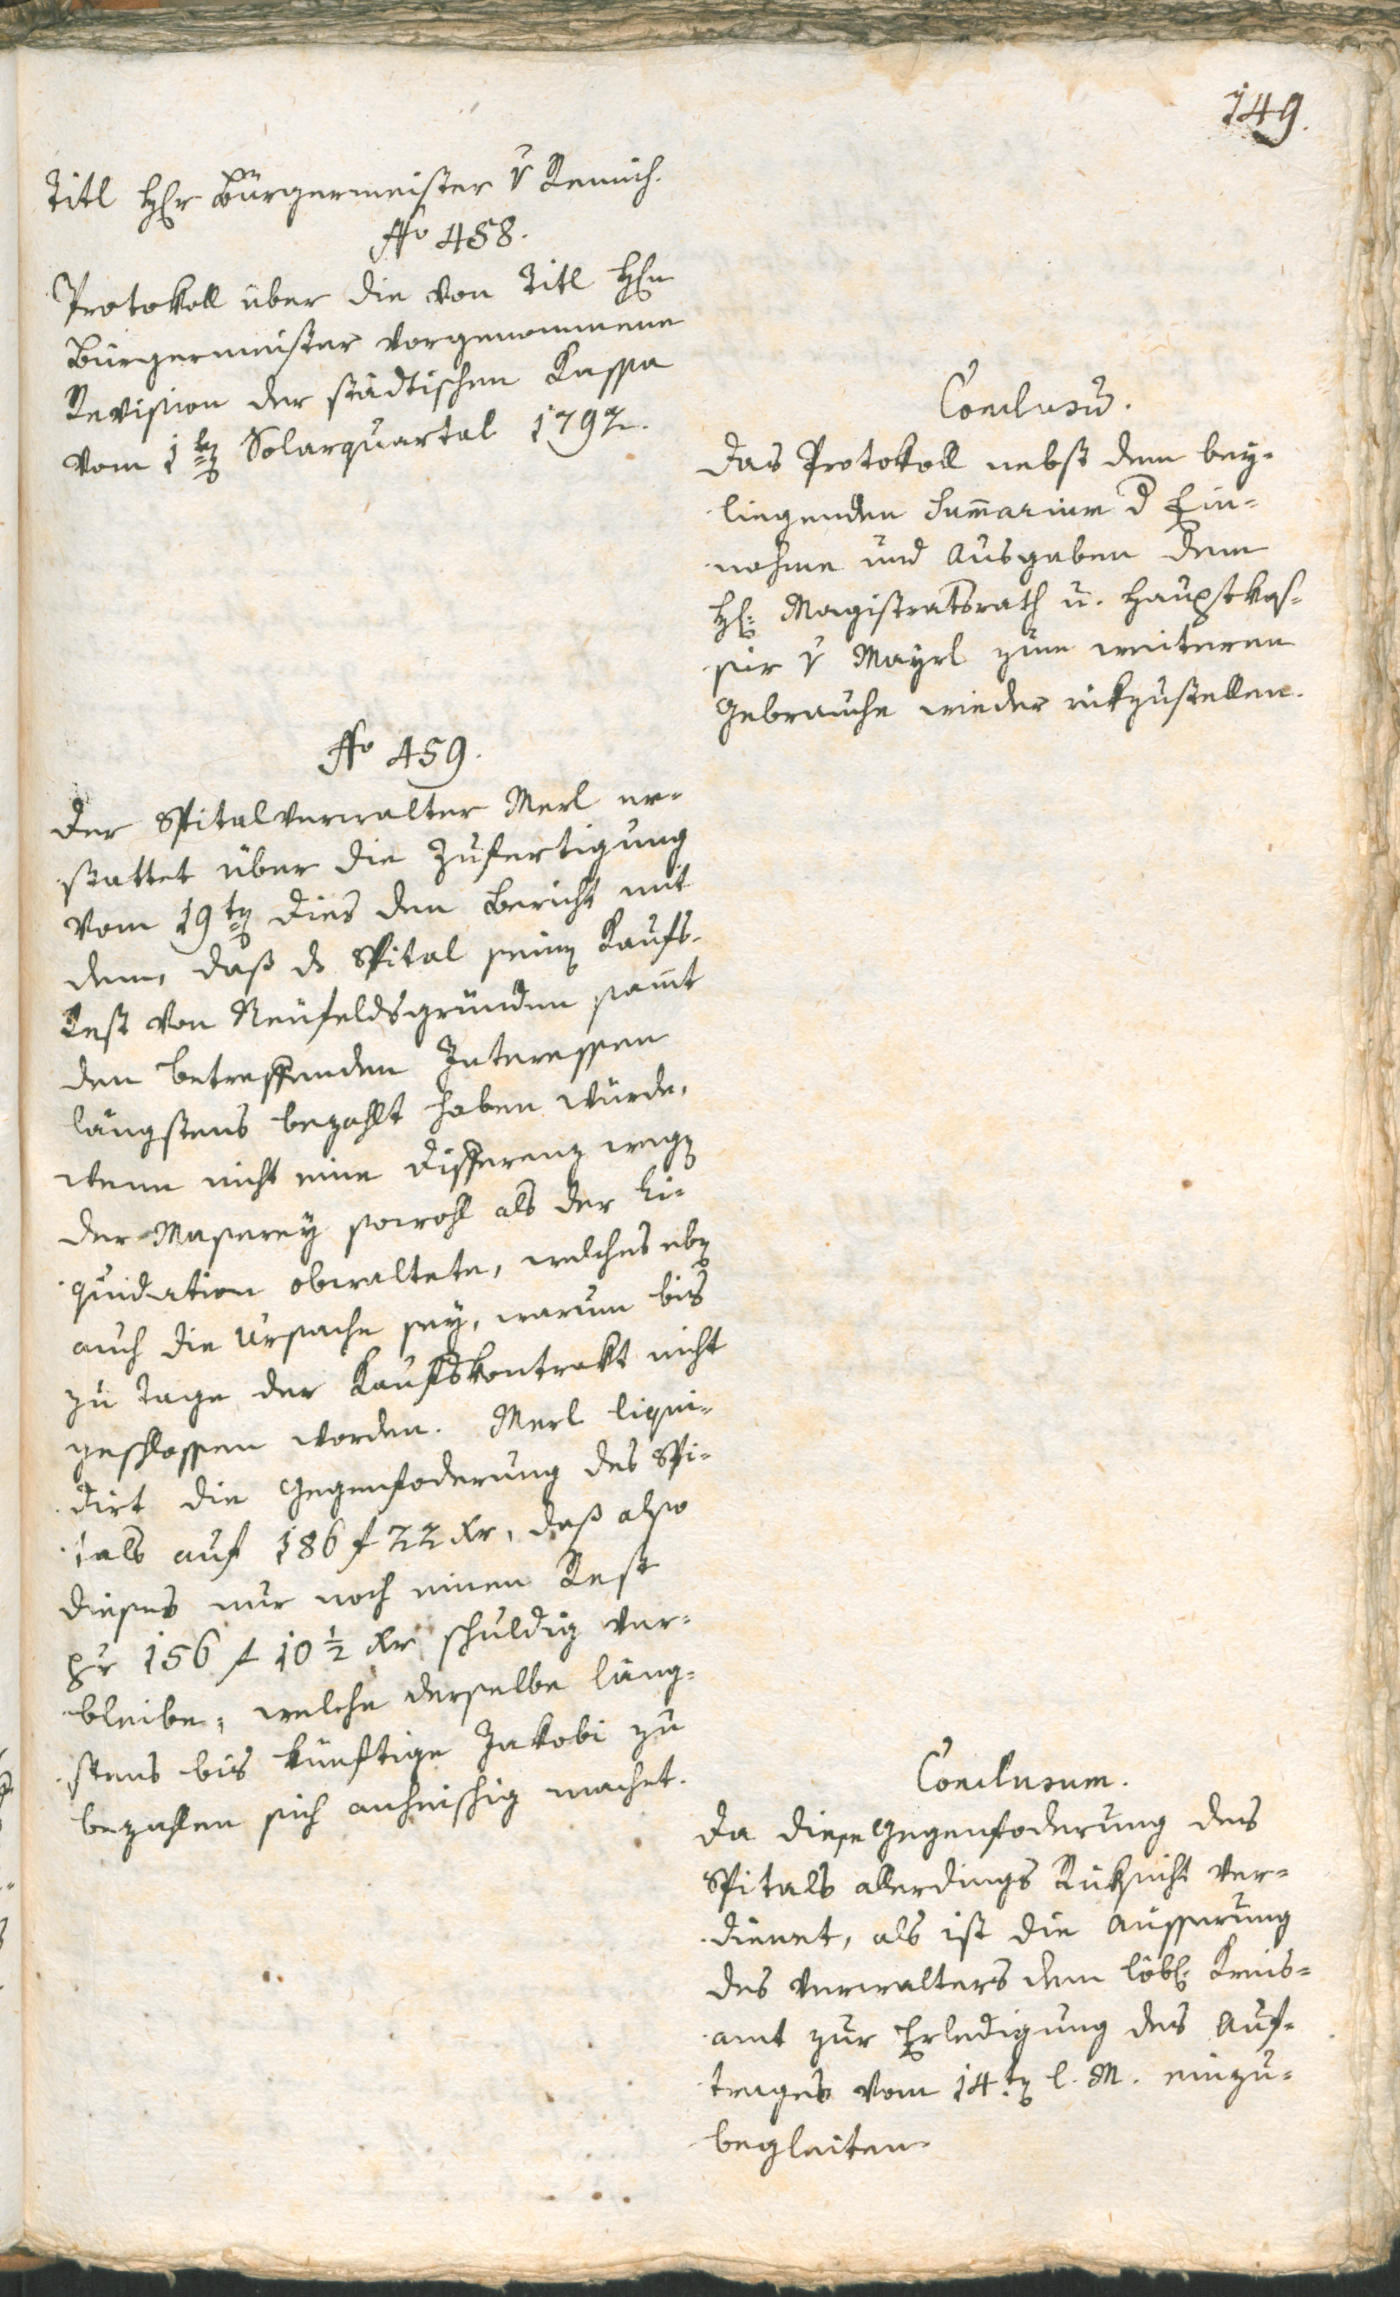 149.
Titl H(er)r Bürgermeister v Remich.
No 458.
Protokoll über die von Titl H(er)n
Bürgermeister vorgenommene
Revision der städtischen Kassa
vom 1ten Solarquartal 1792.
Conclusū.
Das Protokoll nebst dem bey-
liegenden Sum̄arium d Ein-
nahme und Ausgaben dem
H: Magistratsrath u. Hauptkas-
sir v Mayrl zum weiteren
Gebrauche wieder rükzustellen.
No 459.
Der Spitalverwalter Merl er-
stattet über die Zufertigung
vom 19ten dies den Bericht mit
deme, daß ds Spital seinen Kaufs-
Rest von Neufeldsgründen sam̄t
den betreffenden Interessen
längstens bezahlt haben würde,
wenn nicht eine Differenz wegen
der Masserey sowohl als der Li-
quidation obwaltete, welches eben
auch die Ursache sey, warum bis
zu Tage der Kaufskontrakt nicht
geschlossen worden. Merl liqui-
dirt die Gegenfoderung des Spi-
tals auf 186 f 22 Kr, daß also
dieses nur noch einen Rest
pr 156 f 10 ½ Kr schuldig ver-
bleibe, welche derselbe läng-
stens bis künftige Jakobi zu
bezahlen sich anheischig machet.
Conclusum.
Da diese Gegenfoderung des
Spitals allerdings Rüksicht ver-
dienet, als ist die Äusserung
des Verwalters dem löbl: Kreis-
amt zur Erledigung des Auf-
trages vom 14ten l. M. einzu-
begleiten.